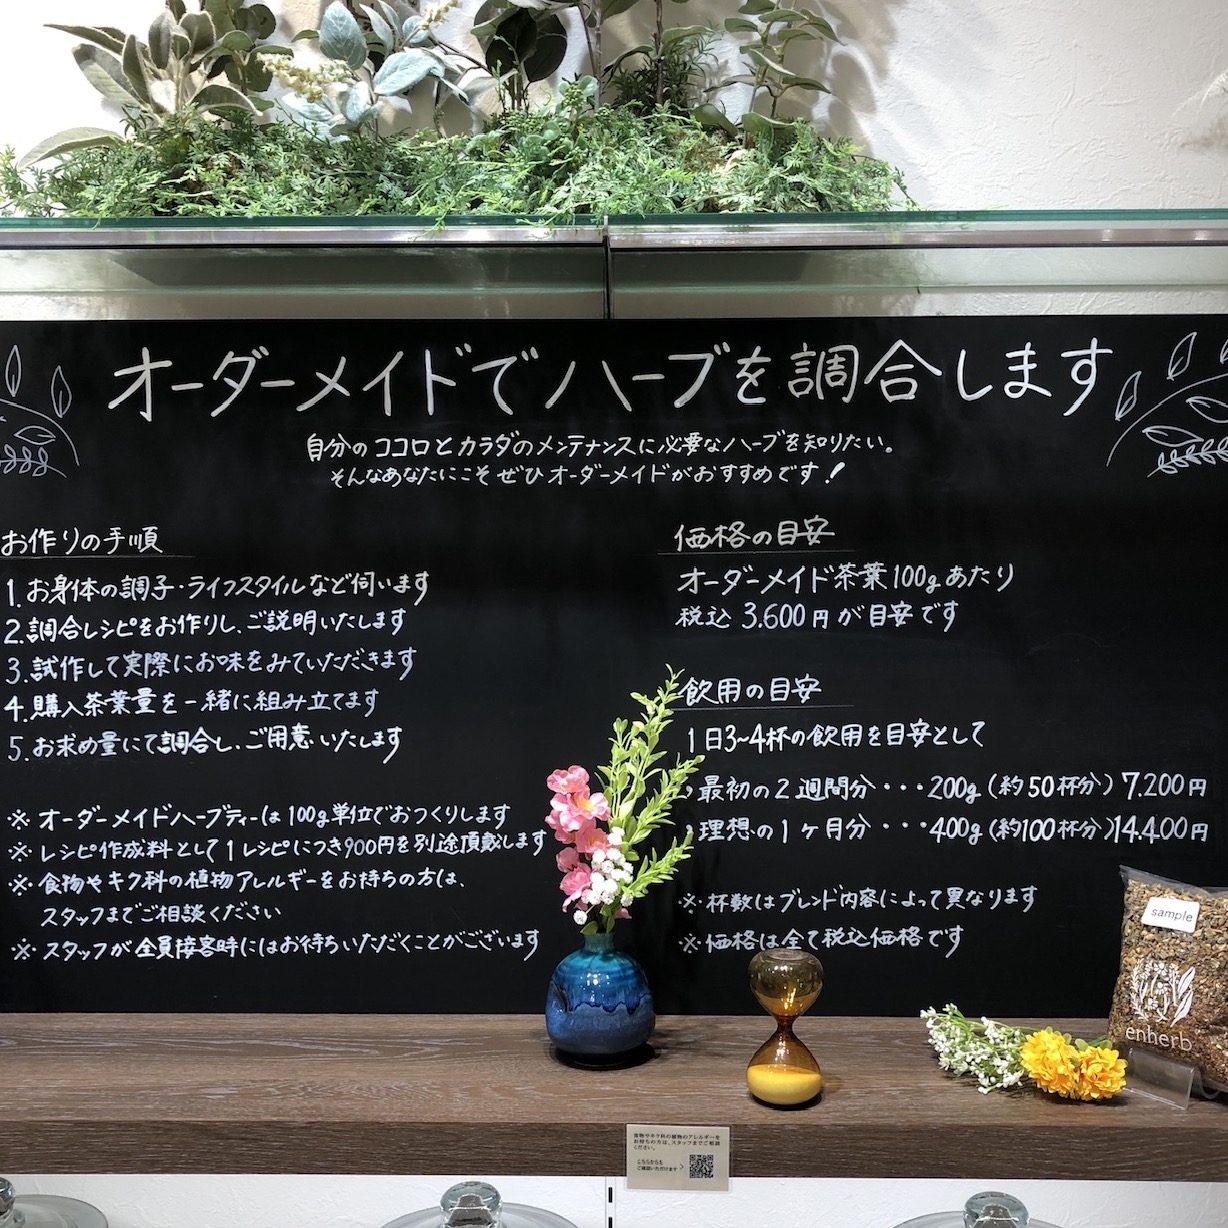 オーダーメイドでハーブを調合します
自分のココロとカラダのメンテナンスに必要なハーブを知りたい。
そんなあなたにこそぜひオーダーメイドがおすすめです!
お作りの手順
1.お身体の調子・ライフスタイルなど伺います
2.調合レシピをお作りし、ご説明いたします
3.試作して実際にお味をみていただきます
4.購入茶葉量を一緒に組み立てます
5.お求め量にて調合し、ご用意いたします
※ オーダーメイドハーブティーは100g単位でおつくりします
※ レシピ作成料として1レシピにつき900円を別途頂戴します
※ 食物やキク科の植物アレルギーをお持ちの方は、
スタッフまでご相談ください
※ スタッフが全員接客時にはお待ちいただくことがございます
価格の目安
オーダーメイド茶葉100gあたり
税込 3.600円が目安です
飲用の目安
1日3~4杯の飲用を目安として
・最初の2週間分・・・200g(約50杯分)7.200円
・理想の1ヶ月分・・・400g(約100杯分)14.400円
※ 杯数はブレンド内容によって異なります
※ 価格は全て税込価格です
sample
enherb
食物やキク科の植物のアレルギーを
お持ちの方は、スタッフまでご相談
ください。
こちらからも
ご確認いただけます >